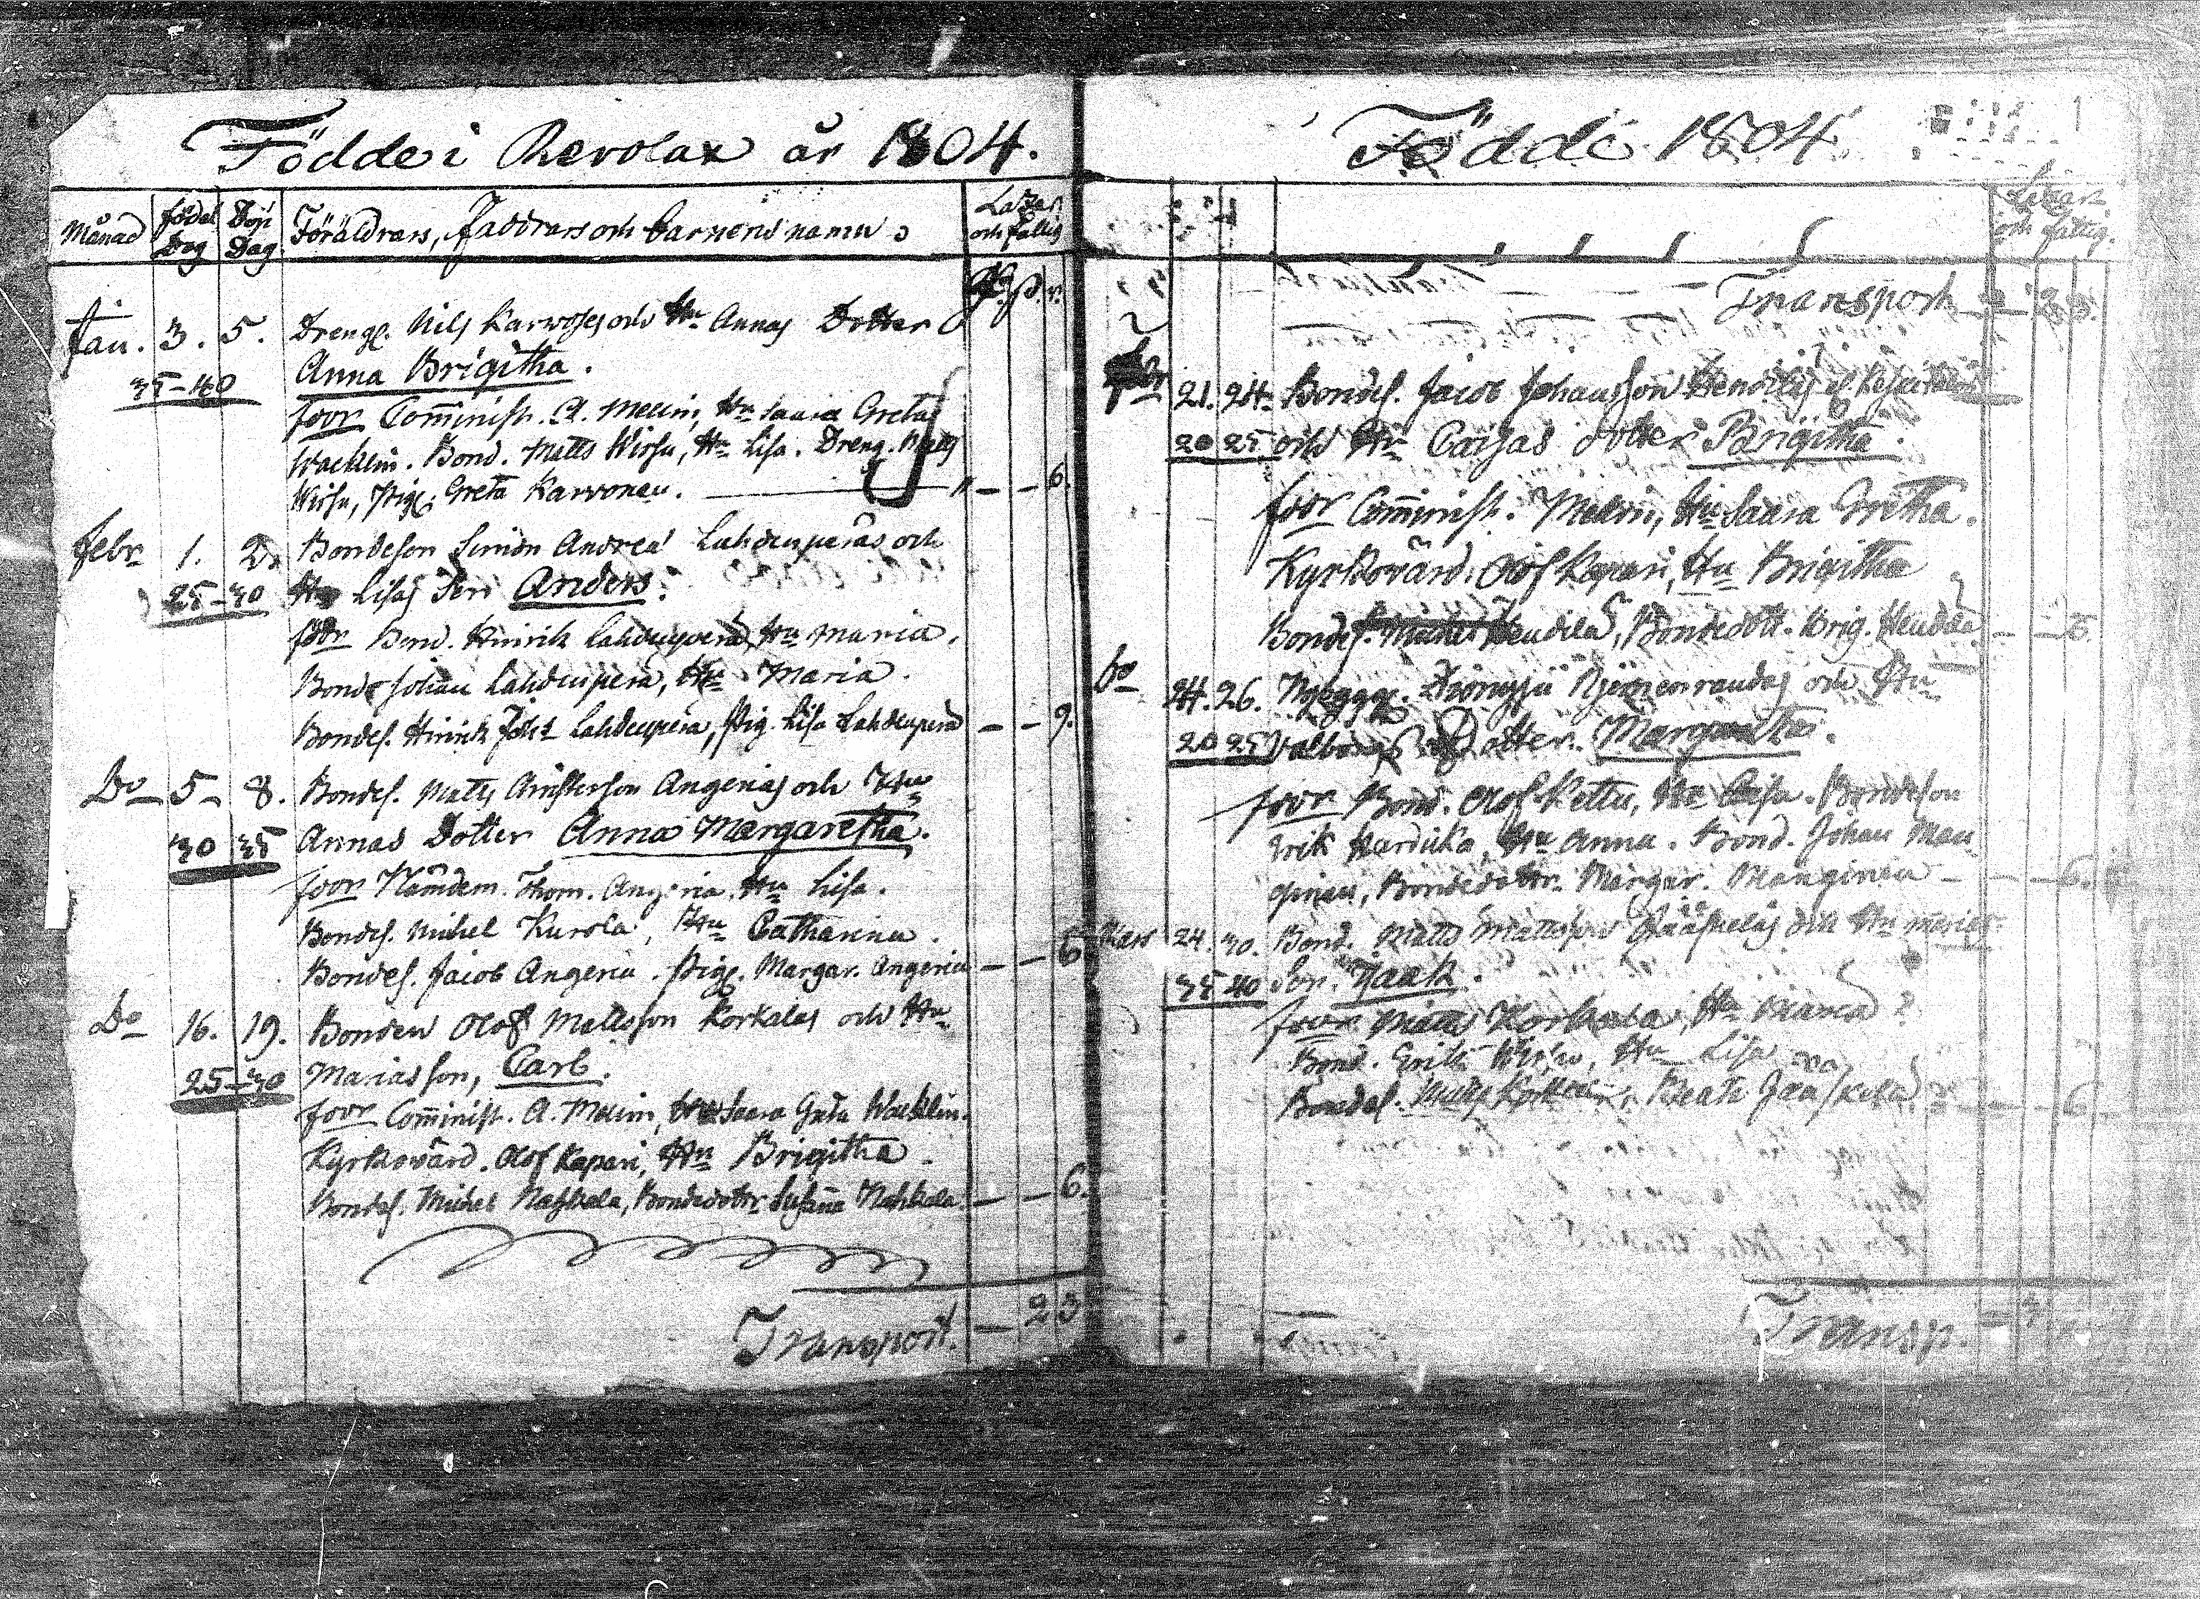 Födde i Revolax år 1804.
Månad
födel Dag
Döp Dag
Föräldrars, Faddrars och barnens namn
Lazar. och fattig
Jan. 3. 5. Drengs. Nils Karwoses och Hu Annas Dotter
35-40 Anna Brigitha.
foor Comminist. A. Mellin, Hu Saara Greta
Wacklin. Bond. Matts Wirsu, Hu Lisa. Dreng. Matts
Wirsu, Pig. Greta Karvonen. — 6.
Febr 1. 2. Bondeson Simon Andrea Lahdenperäs och
25-30 Hu Lisas Son Anders.
foor Bond. Hinrik Lahdenperä, Hu Maria.
Bonde Johan Lahdenperä, Hu Maria.
Bondes. Hinrik Lahdenperä, Pig. Lisa Lahdenperä — — 9.
Do 5 8. Bondes. Matts Christersson Angerias och Hu
30 35 Annas Dotter Anna Margaretha.
foor Nämdem. Thom. Angeria, Hu Lisa.
Bondes. Michel Kurola, Hu Catharina.
Bondes. Jacob Angeria. Pig. Margar. Angeria — — 6
Do 16. 19. Bonden Olof Mattsson Korkalas och Hu
25-30 Marias son, Carl.
foor Comminist. A. Mellin, Hu Saara Greta Wacklin.
Kyrkovärd. Olof Kapari, Hu Brigitha.
Bondes. Michel Nahkala, Bondedotr. Susanna Nahkala — — 6.
Transport. — 23
Födde 1804
Lazar. och fattig.
Transport — 23.
Febr 21. 24. Bondes. Jacob Johansson Hendiläs
20 25 och Hu Caisas dotter Brigitha.
foor Comminist. Mellin, Hu Saara Gretha.
Kyrkovärd. Olof Kapari, Hu Brigitha
Bondes. Michel Hendilä, Bondedott. Brig. Hendilä — — 6.
Do 24. 26. och Hu
20 25 Valborgs Dotter. Margaretha.
foor Bond. Olof Kettu, Hu Caisa. Bondeson
Erik Karduka, Hu Anna. Bond. Johan Man
ginen, Bondedotr. Margar. Manginen — — 6.
Mars 24. 30. Bond. Matts Mattsson Jääskeläs och Hu Marias
35 40 Son. Isaak.
foor Matts Korkala, Hu Maria
Bond. Erik Wirsu, Hu Lisa
Bondes. Matts Korkala, Beata Jääskelä — — 6
Transp.